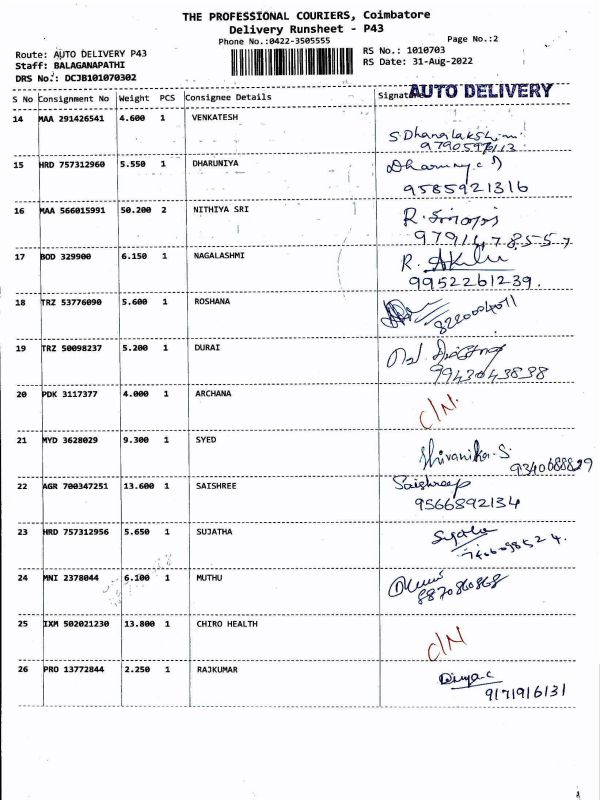 THE PROFESSIONAL COURIERS, Coimbatore
Delivery Runsheet - P43
Phone No.:0422-3505555
Page No.:2
Route: AUTO DELIVERY P43
RS No.: 1010703
Staff: BALAGANAPATHI
RS Date: 31-Aug-2022
DRS No.: DCJB101070302
S No Consignment No Weight PCS Consignee Details Signature AUTO DELIVERY
14 MAA 291426541 4.600 1 VENKATESH
S Dhanalakshmi
15 HRD 757312960 5.550 1 DHARUNIYA
9585921316
16 MAA 566015991 50.200 2 NITHIYA SRI
R.
9791478557
17 BOD 329900 6.150 1 NAGALASHMI
R. Akilu
9952261239.
18 TRZ 53776090 5.600 1 ROSHANA
8220004011
19 TRZ 50098237 5.200 1 DURAI
9943043838
20 PDK 3117377 4.000 1 ARCHANA
C/N.
21 MYD 3628029 9.300 1 SYED
Shivanika.S
9340688829
22 AGR 700347251 13.600 1 SAISHREE
Saishree
9566892134
23 HRD 757312956 5.650 1 SUJATHA
Sujatha
24 MNI 2378044 6.100 1 MUTHU
8870860868
25 IXM 502021230 13.800 1 CHIRO HEALTH
C/N
26 PRO 13772844 2.250 1 RAJKUMAR
Divya.c
9171916131